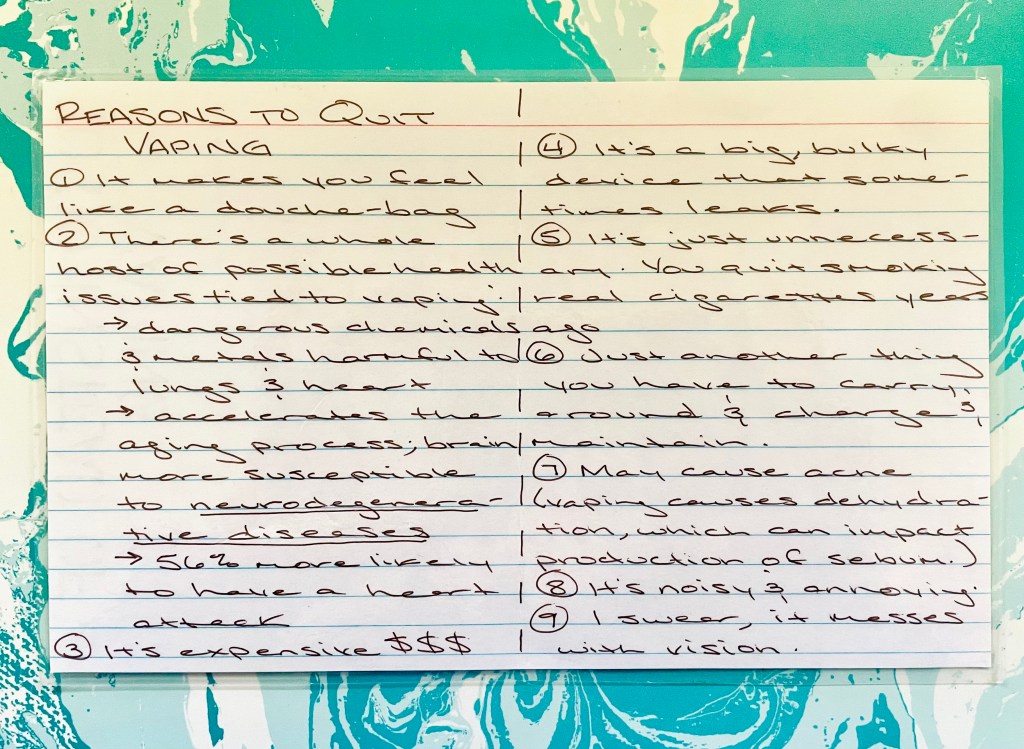 REASONS TO QUIT
VAPING
① It makes you feel
like a douche-bag
② There's a whole
host of possible health
issues tied to vaping:
→ dangerous chemicals
& metals harmful to
lungs & heart
→ accelerates the
aging process; brain
more susceptible
to neurodegenera-
tive diseases
→ 56% more likely
to have a heart
attack
③ It's expensive $$$
④ It's a big, bulky
device that some-
times leaks.
⑤ It's just unnecess-
ary. You quit smoking
real cigarettes years
ago
⑥ Just another thing
you have to carry
around & charge &
maintain.
⑦ May cause acne
(vaping causes dehydra-
tion, which can impact
production of sebum.)
⑧ It's noisy & annoying.
⑨ I swear, it messes
with vision.